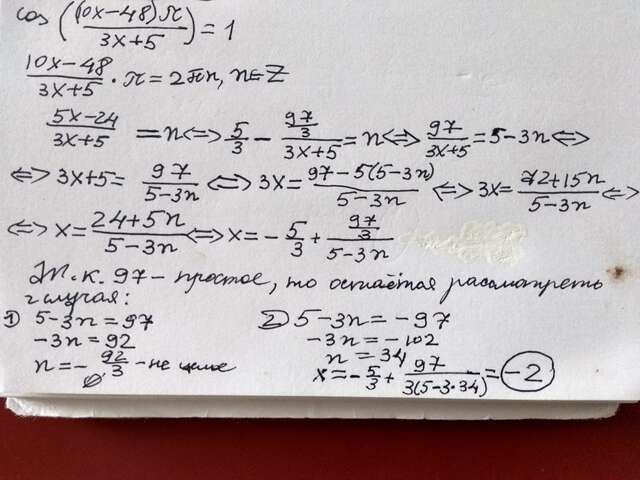 cos((10x-48)π/(3x+5))=1
(10x-48)/(3x+5)·π=2πn, n∈Z
(5x-24)/(3x+5)=n⇔5/3-(97/3)/(3x+5)=n⇔97/(3x+5)=5-3n⇔
⇔3x+5=97/(5-3n)⇔3x=(97-5(5-3n))/(5-3n)⇔3x=(72+15n)/(5-3n)⇔
⇔x=(24+5n)/(5-3n)⇔x=-5/3+(97/3)/(5-3n)
Т.к. 97-простое, то остаётся рассмотреть
2 случая:
1) 5-3n=97
-3n=92
n=-92/3-не целое
∅
2) 5-3n=-97
-3n=-102
n=34
x=-5/3+97/(3(5-3·34))=-2